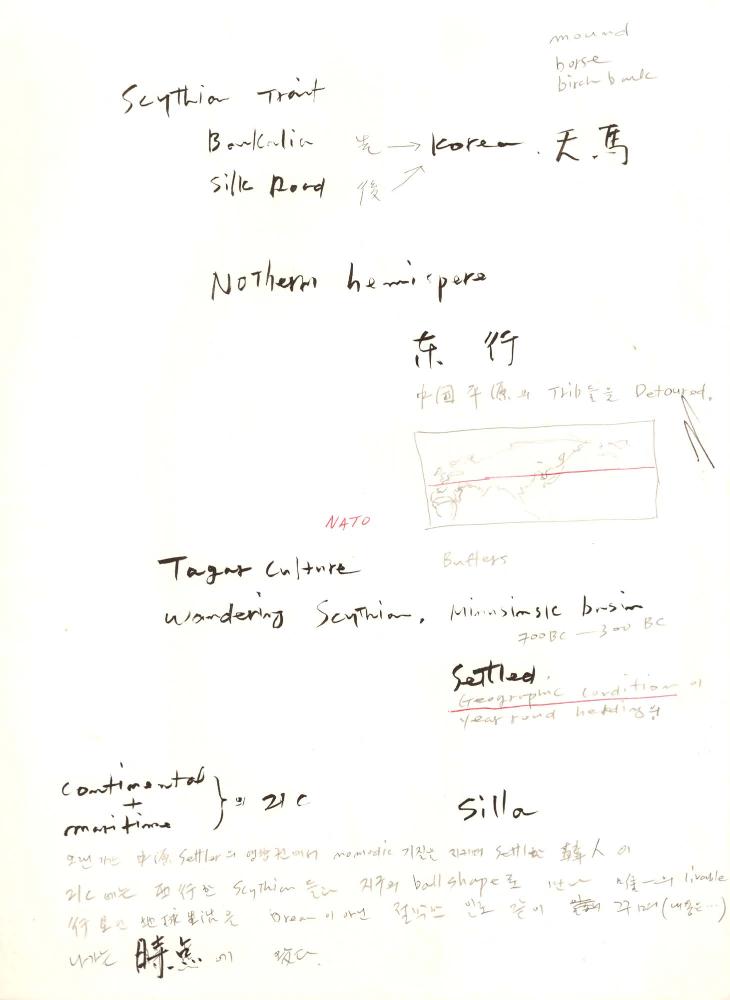 mound
horse
birch bark
Scythian Trait
Baikalia 先 → Korea. 天馬
Silk Road 後
NOThern hemispere
东 行
中國 平原의 Trib들을 Detoured.
NATO
Buffers
Tagar Culture
wandering Scythian, Minusinsic basin
700BC — 300 BC
Settled.
Geographic condition 이
year round herding
continental
+
maritime
} 의 21C
Silla
오랜 中原 Settler의 에서 nomadic 기질은 지니며 settle한 韓人이
21C 에는 西行한 Scythian 들과 지구의 ball shape로 만나 唯一의 livable
行星인 地球生活은 Dream이 아닌 일로 같이 꾸며(내용은...)
나가는 時点에 왔다.